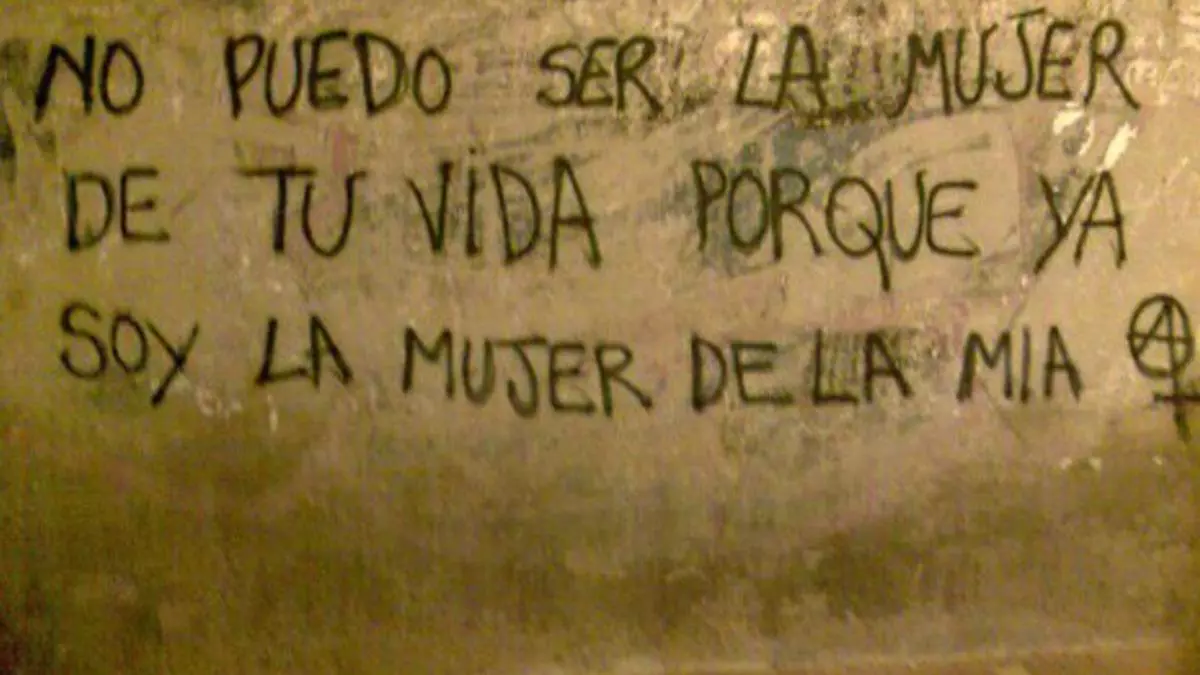 NO PUEDO SER LA MUJER
DE TU VIDA PORQUE YA
SOY LA MUJER DE LA MIA